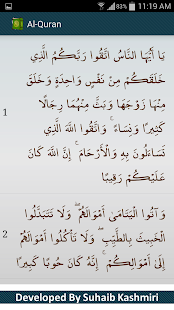 11:19 AM
Al-Quran
يَا أَيُّهَا النَّاسُ اتَّقُوا رَبَّكُمُ الَّذِي
خَلَقَكُمْ مِنْ نَفْسٍ وَاحِدَةٍ وَخَلَقَ
مِنْهَا زَوْجَهَا وَبَثَّ مِنْهُمَا رِجَالًا
1
كَثِيرًا وَنِسَاءً ۚ وَاتَّقُوا اللَّهَ الَّذِي
تَسَاءَلُونَ بِهِ وَالْأَرْحَامَ ۚ إِنَّ اللَّهَ كَانَ
عَلَيْكُمْ رَقِيبًا
وَآتُوا الْيَتَامَىٰ أَمْوَالَهُمْ ۖ وَلَا تَتَبَدَّلُوا
الْخَبِيثَ بِالطَّيِّبِ ۖ وَلَا تَأْكُلُوا أَمْوَالَهُمْ
2
إِلَىٰ أَمْوَالِكُمْ ۚ إِنَّهُ كَانَ حُوبًا كَبِيرًا
Developed By Suhaib Kashmiri